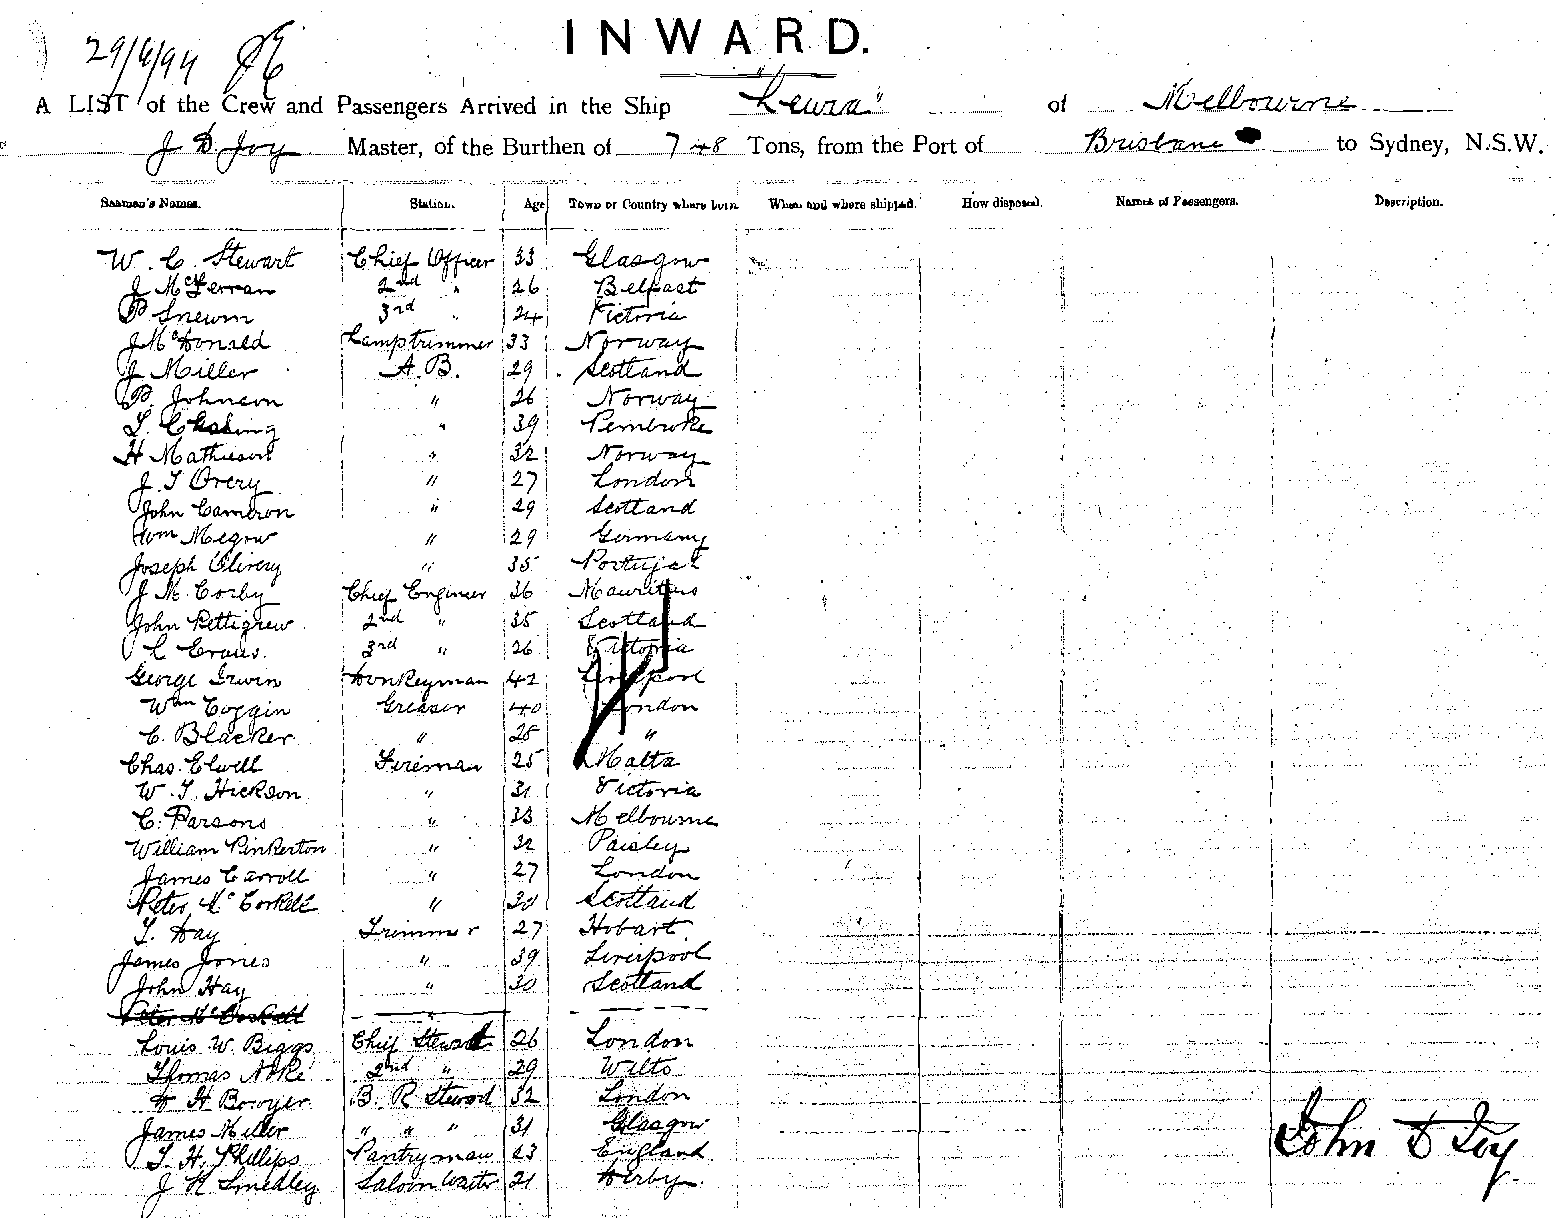 INWARD.
29/6/94
A LIST of the Crew and Passengers Arrived in the Ship "Leura" of Melbourne
J D Joy Master, of the Burthen of 748 Tons, from the Port of Brisbane to Sydney, N.S.W.
Seaman's Names. Station. Age Town or Country where born When and where shipped. How disposed. Names of Passengers. Description.
W. C. Stewart Chief Officer 33 Glasgow
J McFerran 2nd " 26 Belfast
P 3rd " 24 Victoria
J McDonald Lamptrimmer 33 Norway
J Miller A.B. 29 Scotland
P. Johnson " 26 Norway
T. " 39 Pembroke
H Mathieson " 32 Norway
J. T Overy " 27 London
John Cameron " 29 Scotland
Megow " 29 Germany
Joseph Olivery " 35 Portugal
J M Corby Chief Engineer 36 Mauritius
John Pettigrew 2nd " 35 Scotland
3rd " 26 Victoria
George Irwin Donkeyman 42 Liverpool
Wm Coggin Greaser 40 London
C. Blacker " 25 "
Chas. Elwell Fireman 25 Malta
W. T. Hickson " 31 Victoria
C. Parsons " 33 Melbourne
William Pinkerton " 32 Paisley
James Carroll " 27 London
Peter McCorkell " 30 Scotland
T. Hay Trimmer 27 Hobart
James Jones " 39 Liverpool
John Hay " 30 Scotland
Peter McCorkell "
Louis W. Biggs Chief Steward 26 London
Thomas Noke 2nd " 29 Wilts
D H Bowyer B. R Steward 32 London
James Miller " " " 31 Glasgow
T. H. Phillips Pantryman 23 England
J H Smedley Saloon Waiter 21 Derby
John D Joy